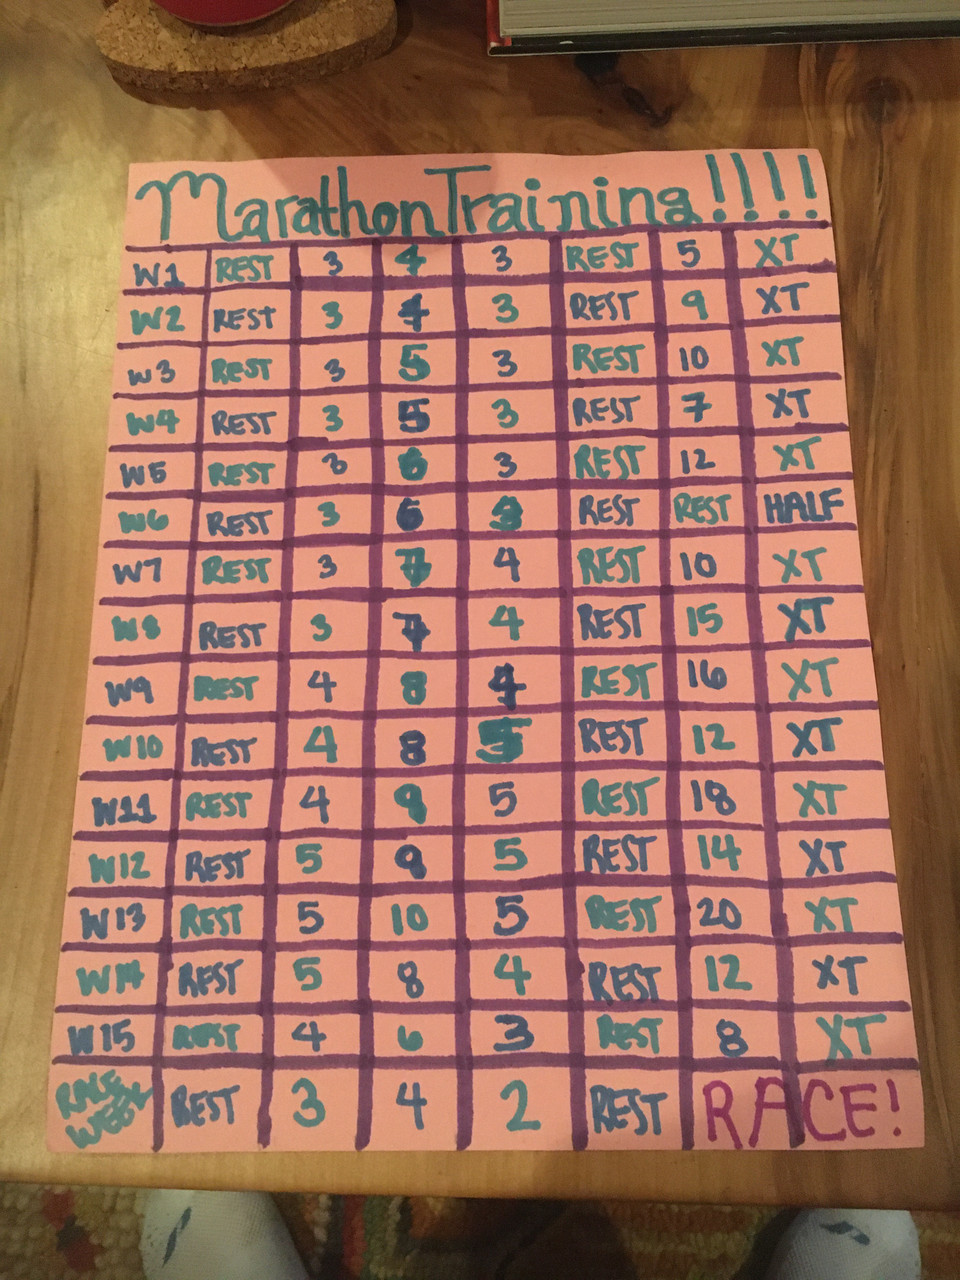 Marathon Training!!!!
W1 REST 3 4 3 REST 5 XT
W2 REST 3 4 3 REST 9 XT
W3 REST 3 5 3 REST 10 XT
W4 REST 3 5 3 REST 7 XT
W5 REST 3 6 3 REST 12 XT
W6 REST 3 6 3 REST REST HALF
W7 REST 3 7 4 REST 10 XT
W8 REST 3 7 4 REST 15 XT
W9 REST 4 8 4 REST 16 XT
W10 REST 4 8 5 REST 12 XT
W11 REST 4 9 5 REST 18 XT
W12 REST 5 9 5 REST 14 XT
W13 REST 5 10 5 REST 20 XT
W14 REST 5 8 4 REST 12 XT
W15 REST 4 6 3 REST 8 XT
RACE WEEK REST 3 4 2 REST RACE!